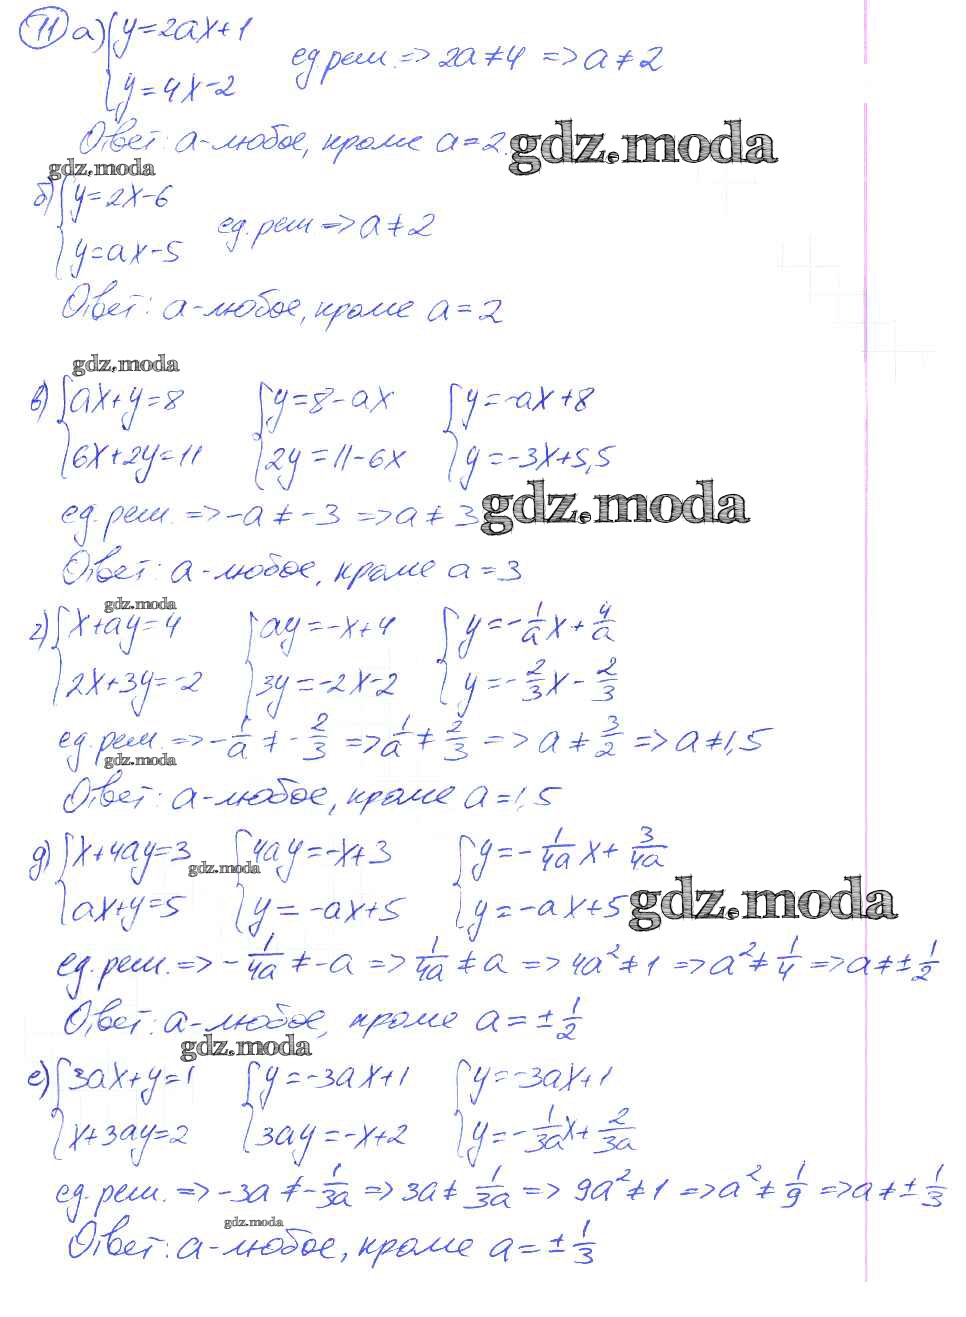 11 а) { y=2ax+1
y=4x-2
ед.реш. => 2a≠4 => a≠2
Ответ: а-любое, кроме a=2.
gdz.moda
gdz.moda
б) { y=2x-6
y=ax-5
ед.реш => a≠2
Ответ: а-любое, кроме a=2
gdz.moda
в) { ax+y=8 { y=8-ax { y=-ax+8
6x+2y=11 2y=11-6x y=-3x+5,5
ед.реш. => -a≠-3 => a≠3
gdz.moda
Ответ: а-любое, кроме a=3
gdz.moda
г) { x+ay=4 { ay=-x+4 { y=-1/a x+4/a
2x+3y=-2 3y=-2x-2 y=-2/3 x-2/3
ед.реш. => -1/a ≠ -2/3 => 1/a ≠ 2/3 => a≠3/2 => a≠1,5
gdz.moda
Ответ: а-любое, кроме a=1,5
д) { x+4ay=3 { 4ay=-x+3 { y=-1/4a x+3/4a
gdz.moda
ax+y=5 y=-ax+5 y=-ax+5
gdz.moda
ед.реш. => -1/4a ≠ -a => 1/4a ≠ a => 4a²≠1 => a²≠1/4 => a≠±1/2
Ответ: а-любое, кроме a=±1/2
gdz.moda
е) { 3ax+y=1 { y=-3ax+1 { y=-3ax+1
x+3ay=2 3ay=-x+2 y=-1/3a x+2/3a
ед.реш. => -3a≠-1/3a => 3a≠1/3a => 9a²≠1 => a²≠1/9 => a≠±1/3
gdz.moda
Ответ: а-любое, кроме a=±1/3